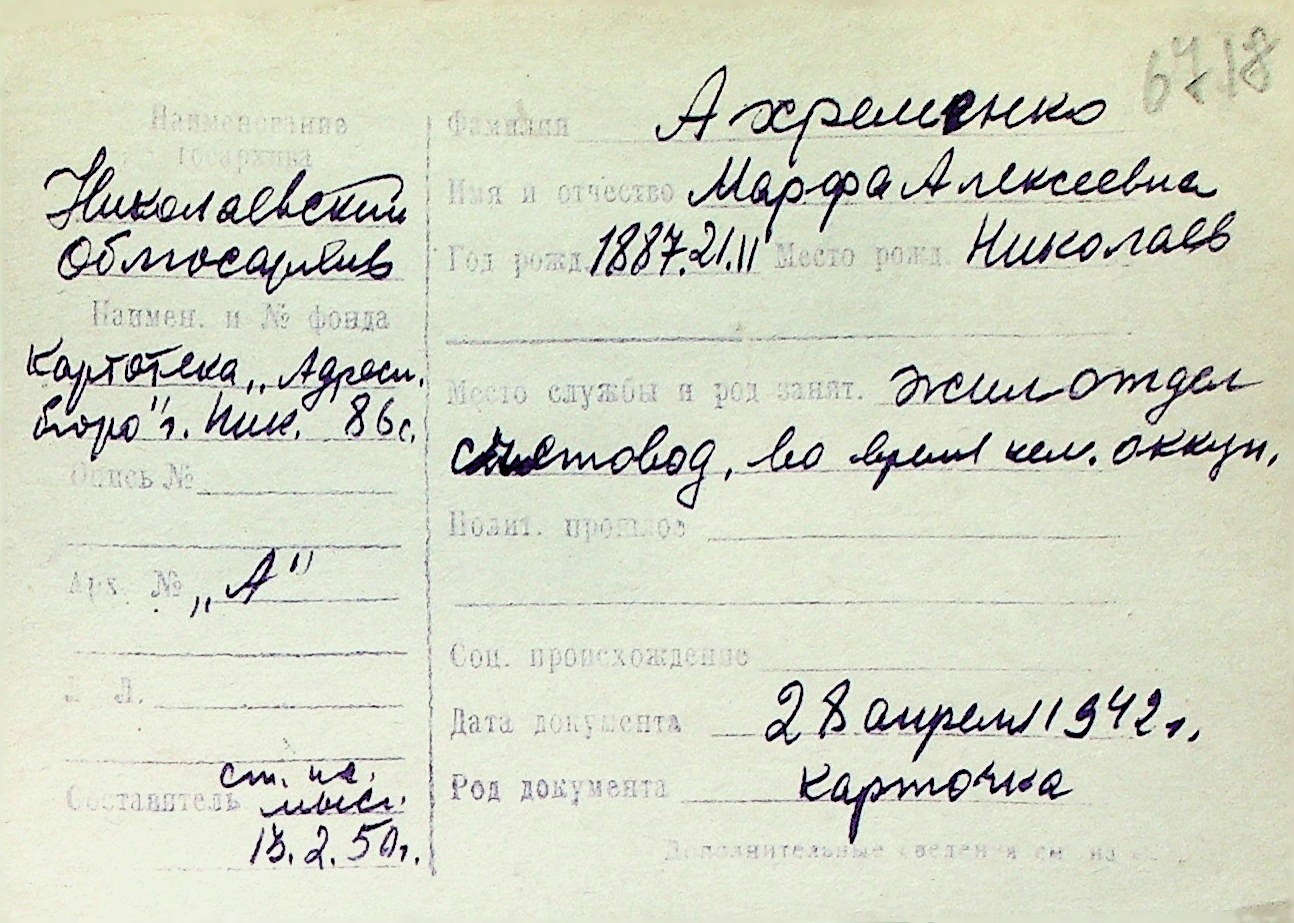 67.18
Наименование
Госархива
Николаевский
Облгосархив
Наимен. и № фонда
Картотека „Адресн.
бюро" г. Ник. 86с.
Опись №
Арх. № „А"
Л.
Составитель ст. на.
13.2.50г.
Фамилия Ахременко
Имя и отчество Марфа Алексеевна
Год рожд. 1887.21.II Место рожд. Николаев
Место службы и род занят. жилотдел
счетовод, во время нем. оккуп.
Полит. прошлое
Соц. происхождение
Дата документа 28 апреля 1942 г.
Род документа карточка
Дополнительные сведения см. на